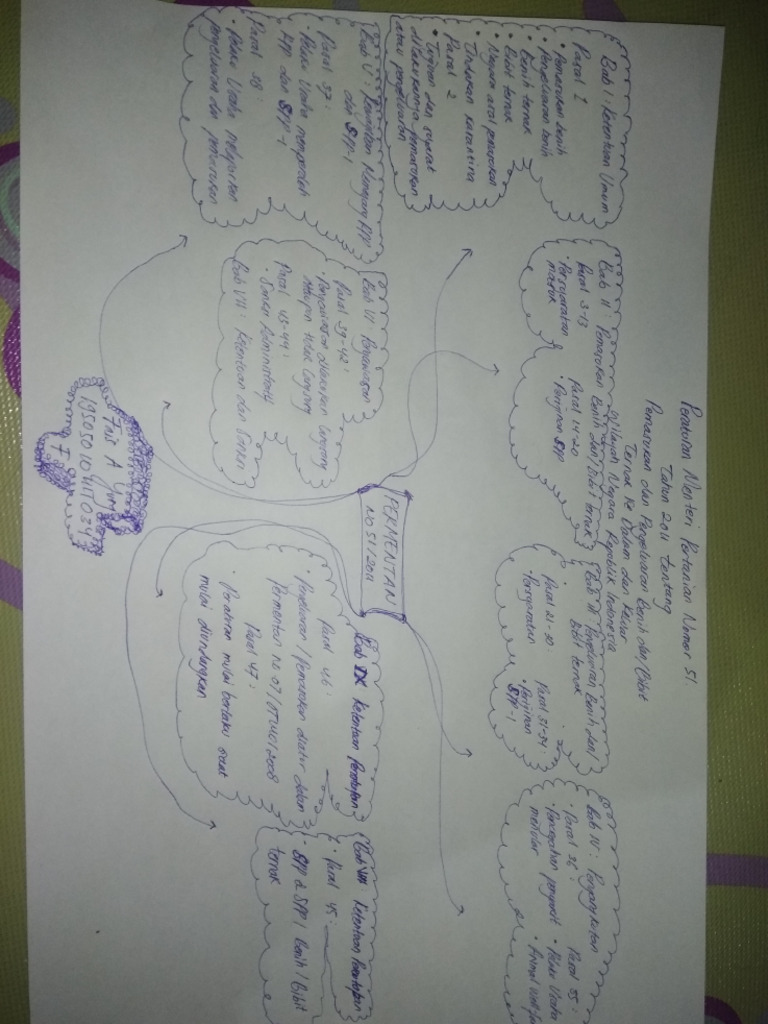 Peraturan Menteri Pertanian Nomor 51
Tahun 2011 tentang
Pemasukan dan Pengeluaran Benih dan/Bibit
Ternak Ke Dalam dan Keluar
Wilayah Negara Republik Indonesia
Bab I : Ketentuan Umum
Pasal 1
• Pemasukan benih
• Pengeluaran benih
• Benih ternak
• Bibit ternak
• Negara asal pemasukan
• Tindakan karantina
Pasal 2
• Tujuan dan syarat
dilakukannya pemasukan
atau pengeluaran
Bab II : Pemasukan Benih dan/Bibit ternak
Pasal 3-13
• Persyaratan
Pasal 14-20
• Perijinan SPP
Bab III : Pengeluaran Benih dan/
Bibit ternak
Pasal 21-30
• Persyaratan
Pasal 31-34 :
• Perijinan
SPP-1
Bab IV : Pengangkutan
• Pasal 36 :
• Pencegahan penyakit
menular
Pasal 35 :
• Pelaku Usaha
• Animal
PERMENTAN
NO 51/2011
Bab V : Kewajiban Memegang RPP
dan SPP-1
Pasal 37 :
• Pelaku Usaha memperoleh
RPP dan SPP-1
Pasal 38 :
• Pelaku Usaha melaporkan
pengeluaran dan pemasukan
Bab VI : Pengawasan
Pasal 39-42 :
• Pengawasan dilakukan langsung
ataupun tidak langsung
Pasal 43-44 :
• Sanksi Administrasi
Bab VII : Ketentuan dan Sanksi
Bab IX Ketentuan Penutupan
Pasal 46 :
• Pengeluaran / Pemasukan diatur dalam
Permentan no 07/OT.140/1/2008
Pasal 47 :
• Peraturan mulai berlaku saat
mulai diundangkan
Bab VIII Ketentuan Penutupan
• Pasal 45 :
• SPP & SPP-1 Benih / Bibit
ternak
F